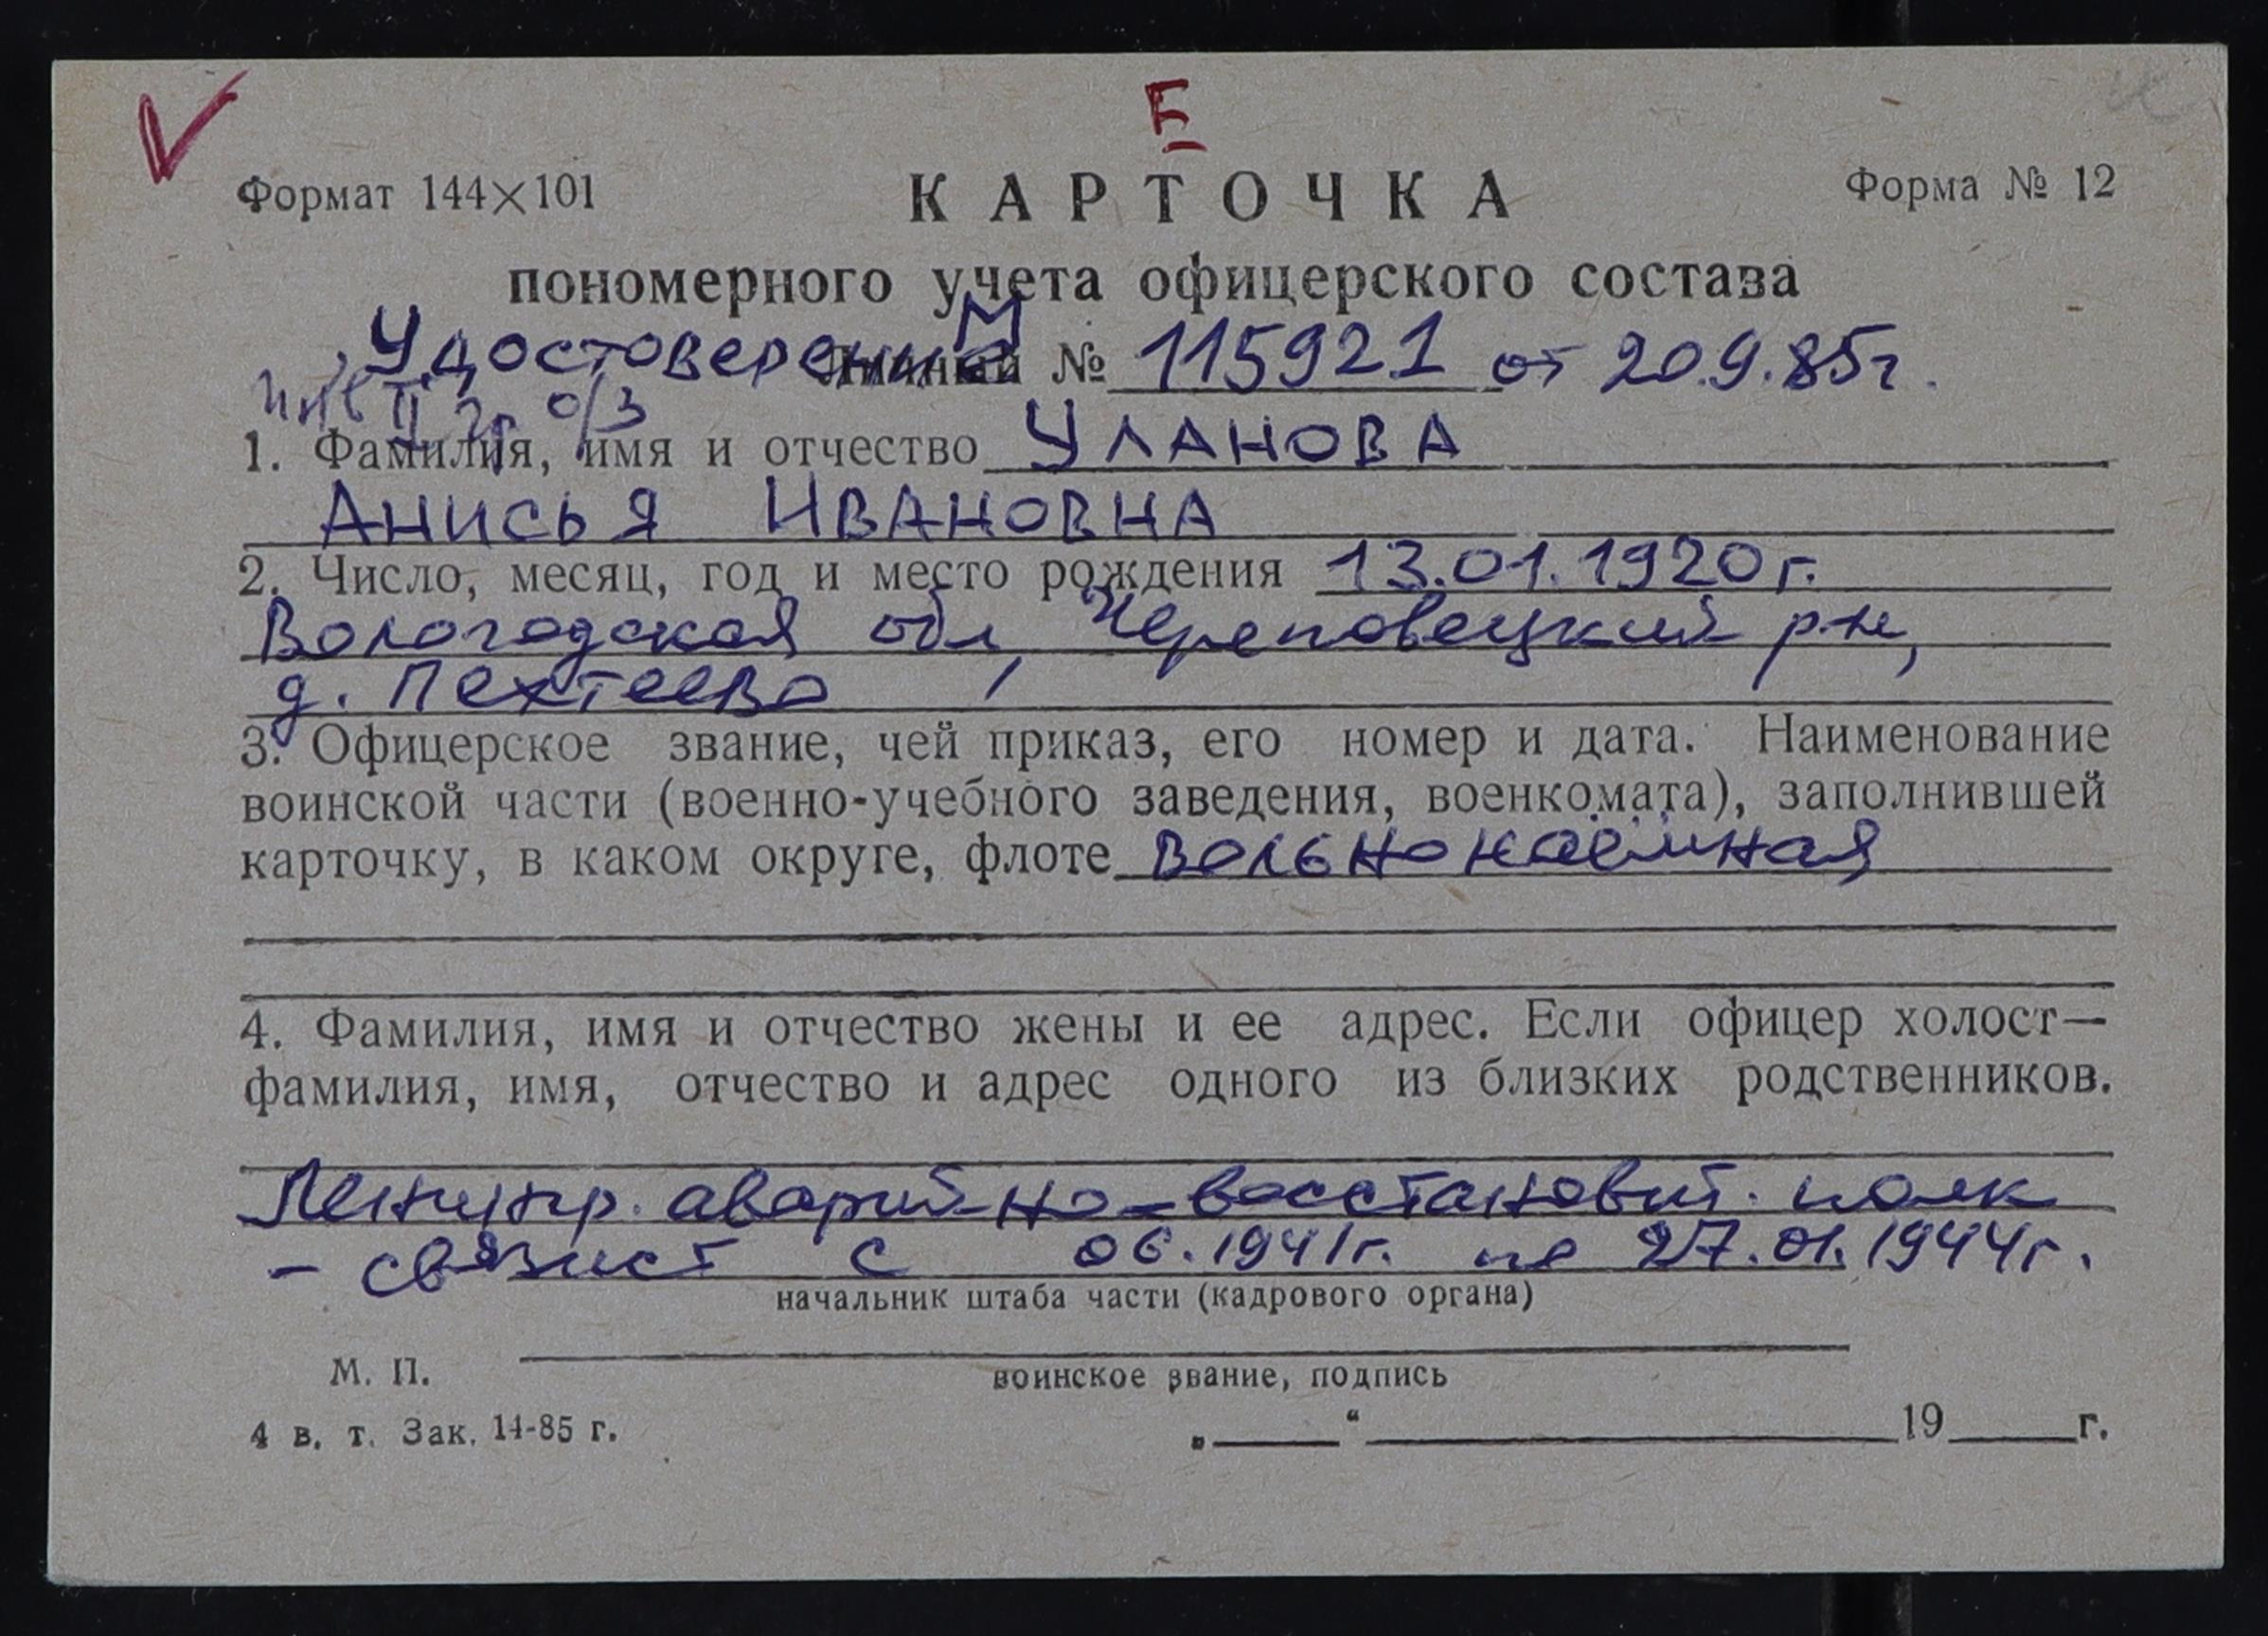 Е
Формат 144×101 КАРТОЧКА Форма № 12
пономерного учета офицерского состава
Удостоверения № 115921 от 20.9.85г.
инв II гр о/з
1. Фамилия, имя и отчество УЛАНОВА
АНИСЬЯ ИВАНОВНА
2. Число, месяц, год и место рождения 13.01.1920г.
Вологодская обл, Череповецкий р-н,
д. Пехтеево
3. Офицерское звание, чей приказ, его номер и дата. Наименование
воинской части (военно-учебного заведения, военкомата), заполнившей
карточку, в каком округе, флоте вольнонаёмная
4. Фамилия, имя и отчество жены и ее адрес. Если офицер холост—
фамилия, имя, отчество и адрес одного из близких родственников.
аварийно-восстановит. полк
- связист с 06.1941г. по 27.01.1944г.
начальник штаба части (кадрового органа)
М. П.
воинское звание, подпись
4 в. т. Зак. 14-85 г.
„ “ 19 г.